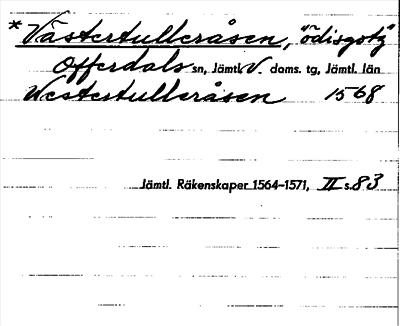 * Västertulleråsen, "ödisgotz"
Offerdals sn, Jämtl. V. doms. tg, Jämtl. län
Westertulleråsen 1568
Jämtl. Räkenskaper 1564-1571, II s. 83